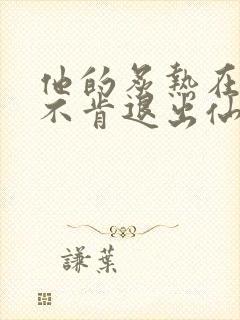 他的炙熱在
不肯退出仙
謙葉